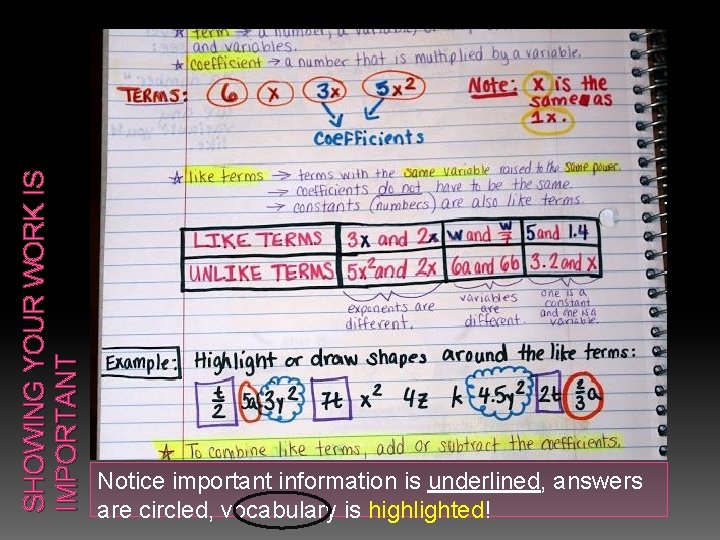 SHOWING YOUR WORK IS
IMPORTANT
★ term → a number, a variable, or
and variables.
★ coefficient → a number that is multiplied by a variable.
TERMS: 6 x 3x 5x²
Note: x is the
same as
1x.
coefficients
★ like terms → terms with the same variable raised to the same power.
→ coefficients do not have to be the same.
→ constants (numbers) are also like terms.
LIKE TERMS 3x and 2x w and w/7 5 and 1.4
UNLIKE TERMS 5x² and 2x 6a and 6b 3.2 and x
exponents are
different.
variables
are
different.
one is a
constant
and one is a
variable.
Example: Highlight or draw shapes around the like terms:
t/2 5a 3y² 7t x² 4z k 4.5y² 2t 2/3a
★ To combine like terms, add or subtract the coefficients.
Notice important information is underlined, answers
are circled, vocabulary is highlighted!